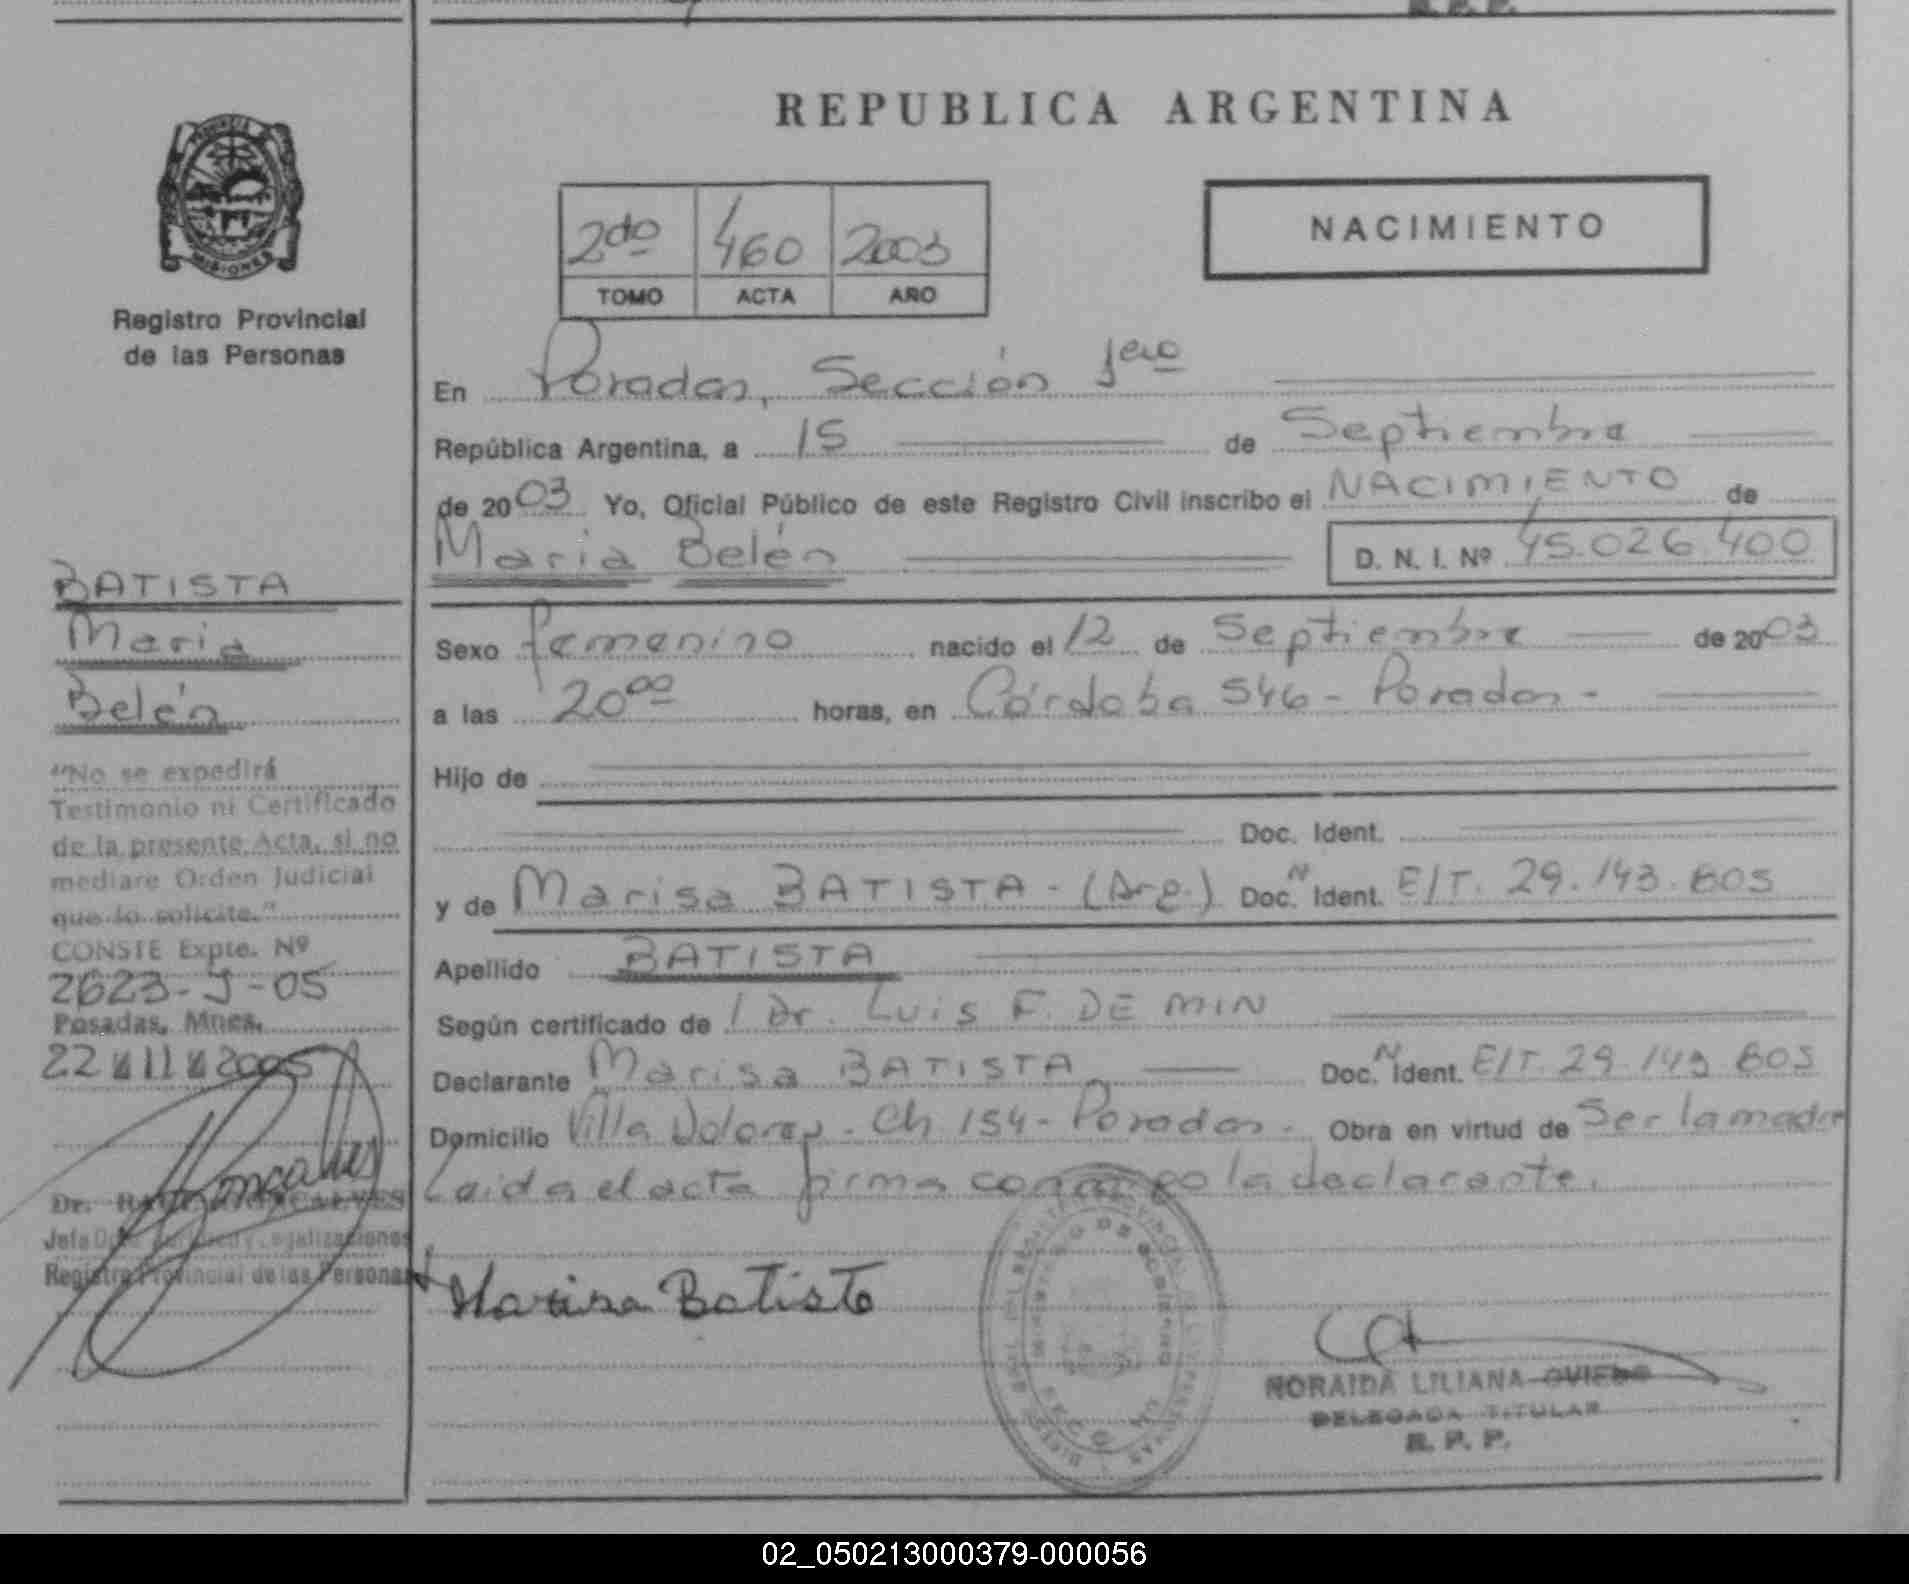 R.P.P.
REPUBLICA ARGENTINA
PROVINCIA DE
MISIONES
Registro Provincial
de las Personas
2do 460 2003
TOMO ACTA AÑO
NACIMIENTO
En Posadas, Sección 1era
República Argentina, a 15 de Septiembre
de 2003 Yo, Oficial Público de este Registro Civil inscribo el NACIMIENTO de
Maria Belén D. N. I. Nº 45.026.400
Sexo femenino nacido el 12 de Septiembre de 2003
a las 20 00 horas, en Córdoba 546 - Posadas -
Hijo de
Doc. Ident.
y de Marisa BATISTA - (Arg.) Doc. N Ident. E/T. 29.143.805
Apellido BATISTA
Según certificado de / Dr. Luis F. DE MIN
Declarante Marisa BATISTA Doc. N Ident. E/T. 29.143.805
Domicilio Villa Dolores - Ch 154 - Posadas - Obra en virtud de Ser la madre
Leida el acta firma conmigo la declarante.
Marisa Batista
NORAIDA LILIANA OVIEDO
DELEGADA TITULAR
R. P. P.
BATISTA
Maria
Belén
"No se expedirá
Testimonio ni Certificado
de la presente Acta, si no
mediare Orden Judicial
que lo solicite."
CONSTE Expte. Nº
2623-J-05
Posadas, Mnes.
22 11 2005
Dr.
Jefa
Registro Provincial de las Personas
02_050213000379-000056